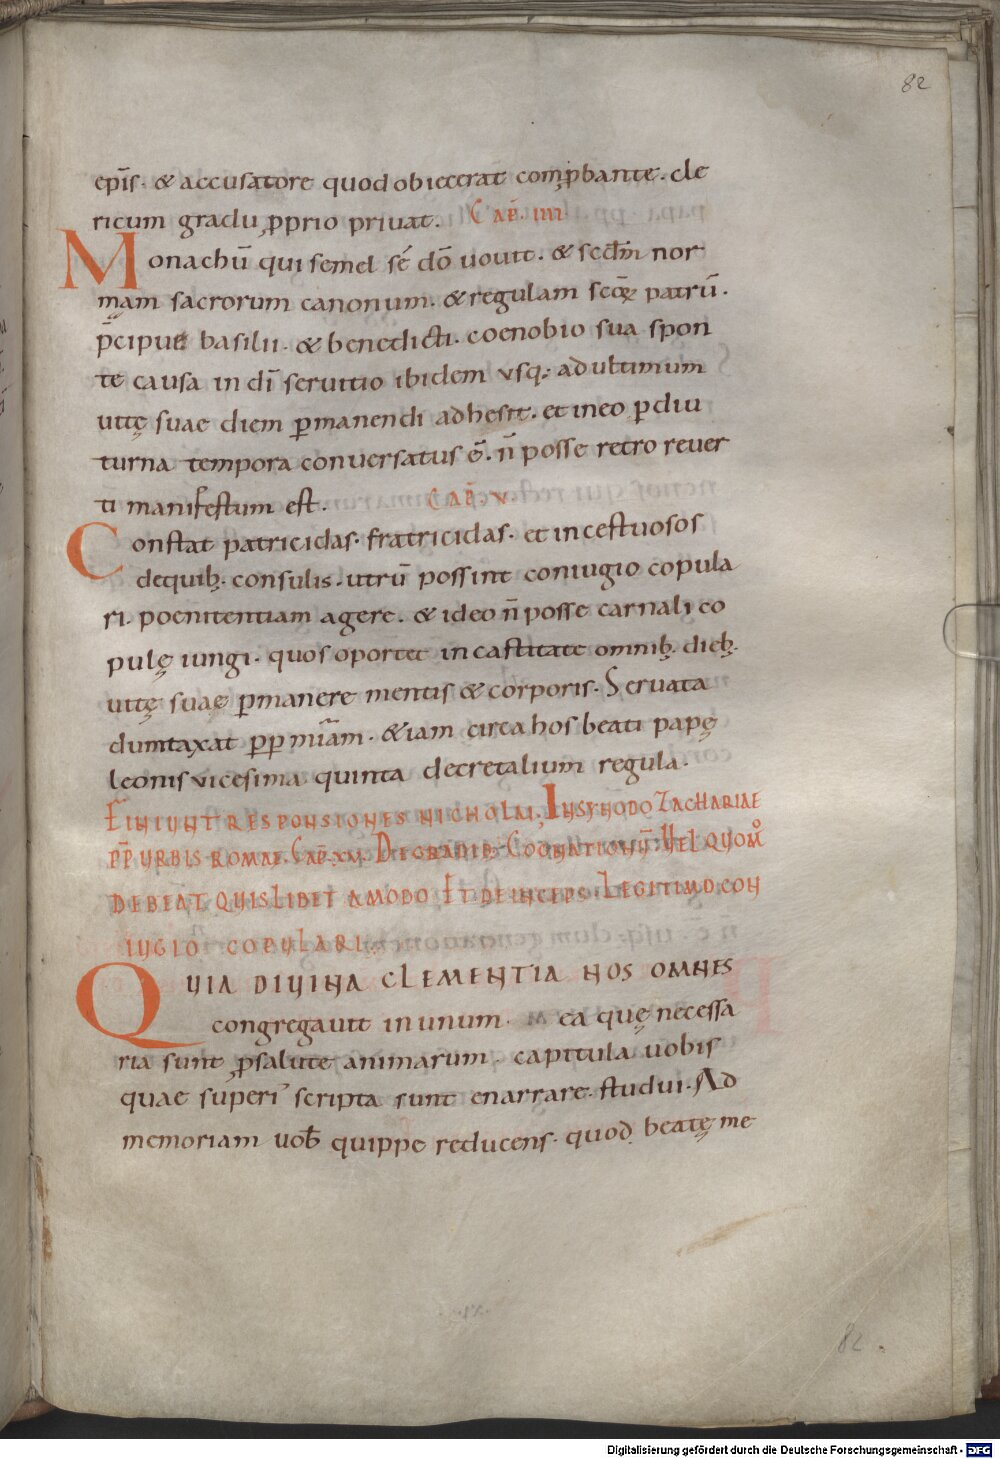 82
ep̄is· & accusatore quod obiecerat comp̱bante· cle
ricum gradu ꝓprio priuat· Cap̄· IIII·
Monachū qui semel sé dō uouit· & sectd̄m nor
mam sacrorum canonum· & regulam sc̄oꝝ patrū·
p̄cipuę basilii· & benedicti· coenobio sua spon
te causa in dī seruitio ibidem usq; ad ultimum
uitę suae diem ꝑmanendi adhesit· et in eo ꝑ diu
turna tempora conuersatus ē· n̄ posse retro reuer
ti manifestum est· Cap̄· V·
Constat patricidas· fratricidas· et incestuosos
de quib; consulis· utrū possint coniugio copula
ri· poenitentiam agere· & ideo n̄ posse carnali co
pulę iungi· quos oportet in castitate omnib; dieb;
uitę suae ꝑmanere mentis & corporis· Seruata
dumtaxat ꝑp mīam· & iam circa hos beati papę
leonis vicesima quinta decretalium regula·
FINIUNT RESPONSIONES NICHOLAI; IN SYNODO ZACHARIAE
PP̄ URBIS ROMAE· CAP̄· XV· DE GRADIB; COGNATIONŪ· VEL QUOM̊
DEBEAT QUISLIBET AMODO ET DEINCEPS· LEGITIMO CON
IUGIO COPULARI·
QUIA DIUINA CLEMENTIA NOS OMNES
congregauit in unum· ea quę necessa
ria sunt ꝓ salute animarum· capitula uobis
quae superiꝰ scripta sunt enarrare studui· Ad
memoriam uob̄ quippe reducens· quod beatę me
82·
Digitalisierung gefördert durch die Deutsche Forschungsgemeinschaft - DFG